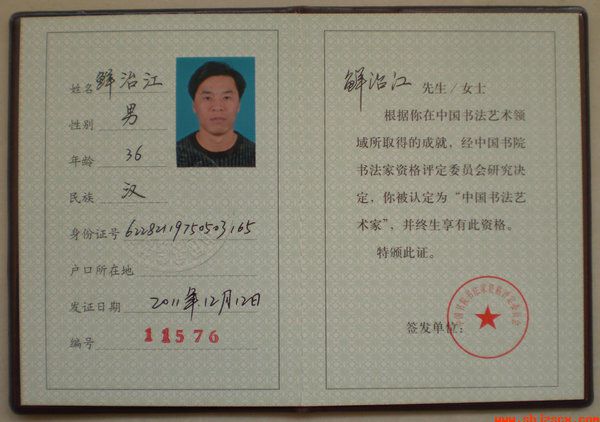 姓名 鲜治江
性别 男
年龄 36
民族 汉
身份证号 622821197505031165
户口所在地
发证日期 2011年12月12日
编号 11576
鲜治江 先生/女士
根据你在中国书法艺术领
域所取得的成就，经中国书院
书法家资格评定委员会研究决
定，你被认定为“中国书法艺
术家”，并终生享有此资格。
特颁此证。
签发单位：